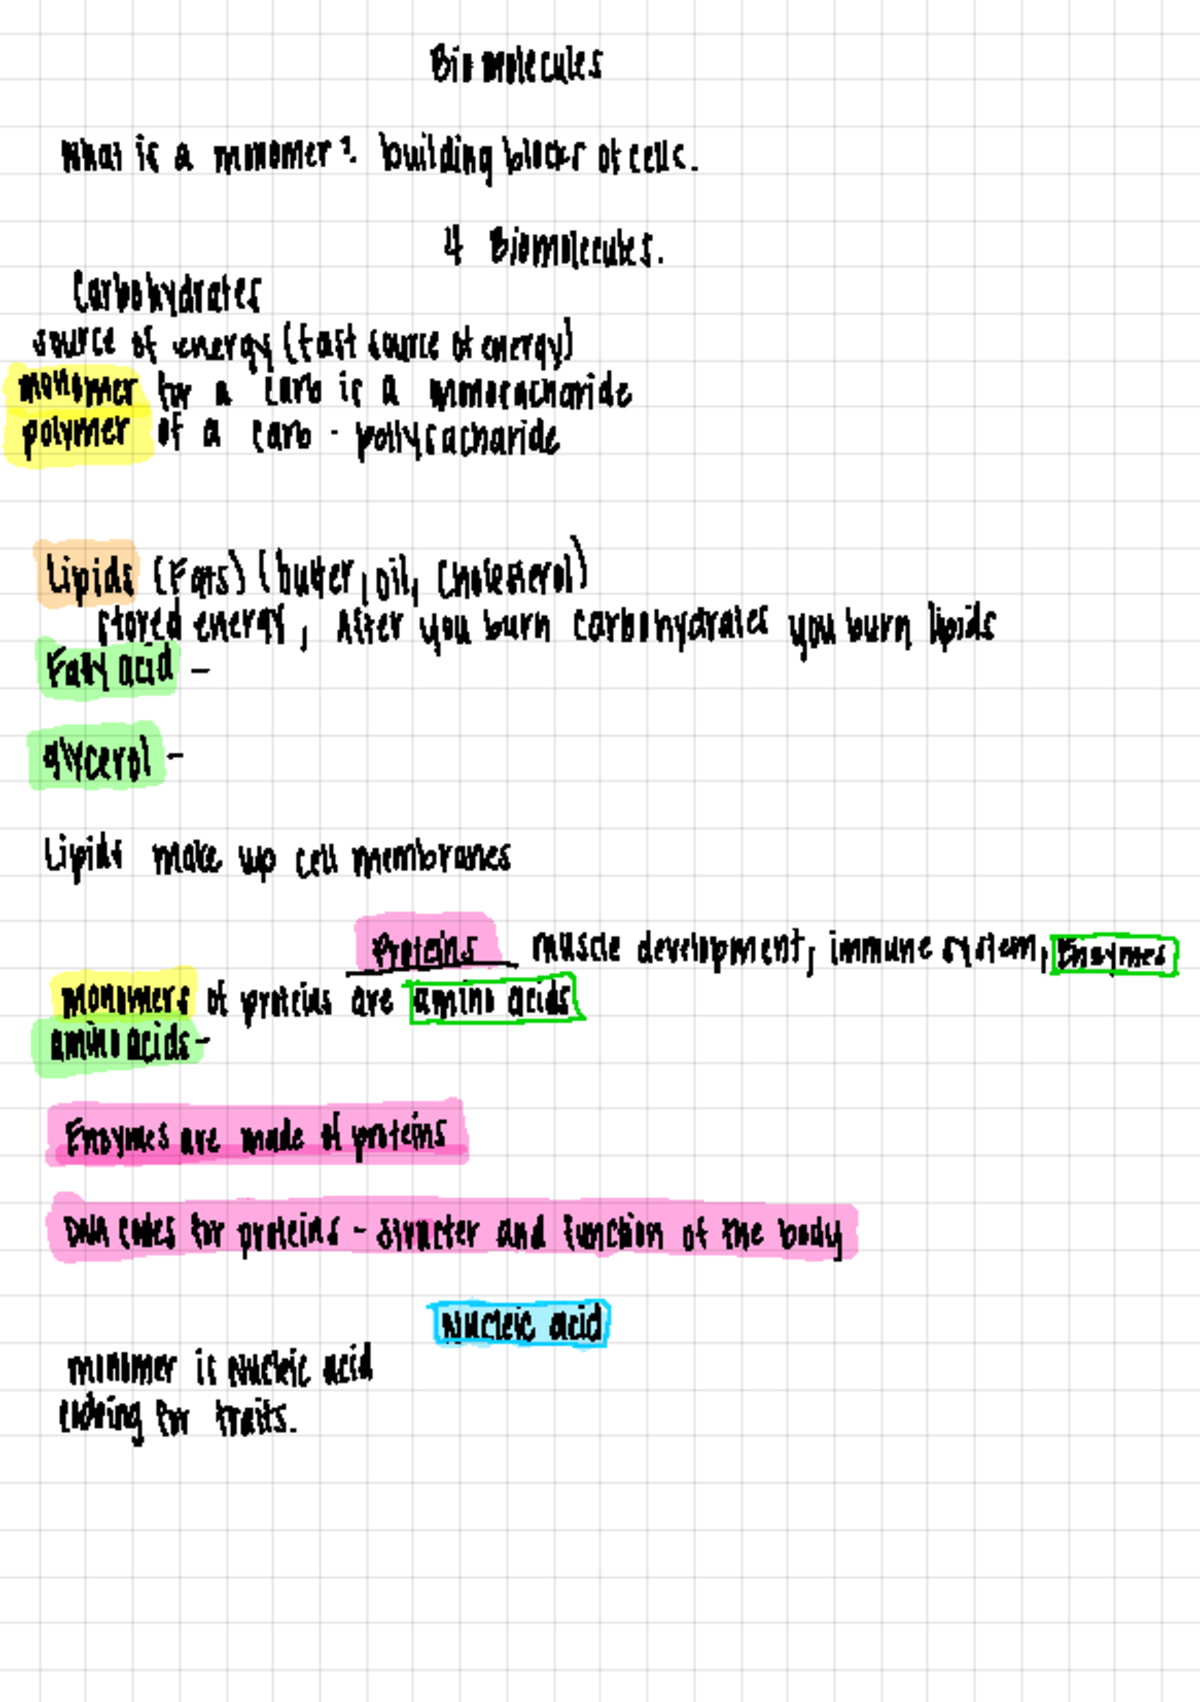 Biomolecules
What is a monomer? building blocks of cells.
4 Biomolecules.
Carbohydrates
source of energy (fast source of energy)
monomer for a carb is a monosacharide
polymer of a carb - pollysacharide
Lipids (Fats) (butter, oil, cholesterol)
stored energy, After you burn carbohydrates you burn lipids
Fatty acid -
glycerol -
Lipids make up cell membranes
Proteins muscle development, immune system, Enzymes
monomers of proteins are amino acids
amino acids -
Enzymes are made of proteins
DNA codes for proteins - and function of the body
Nucleic acid
monomer is Nucleic acid
coding for traits.